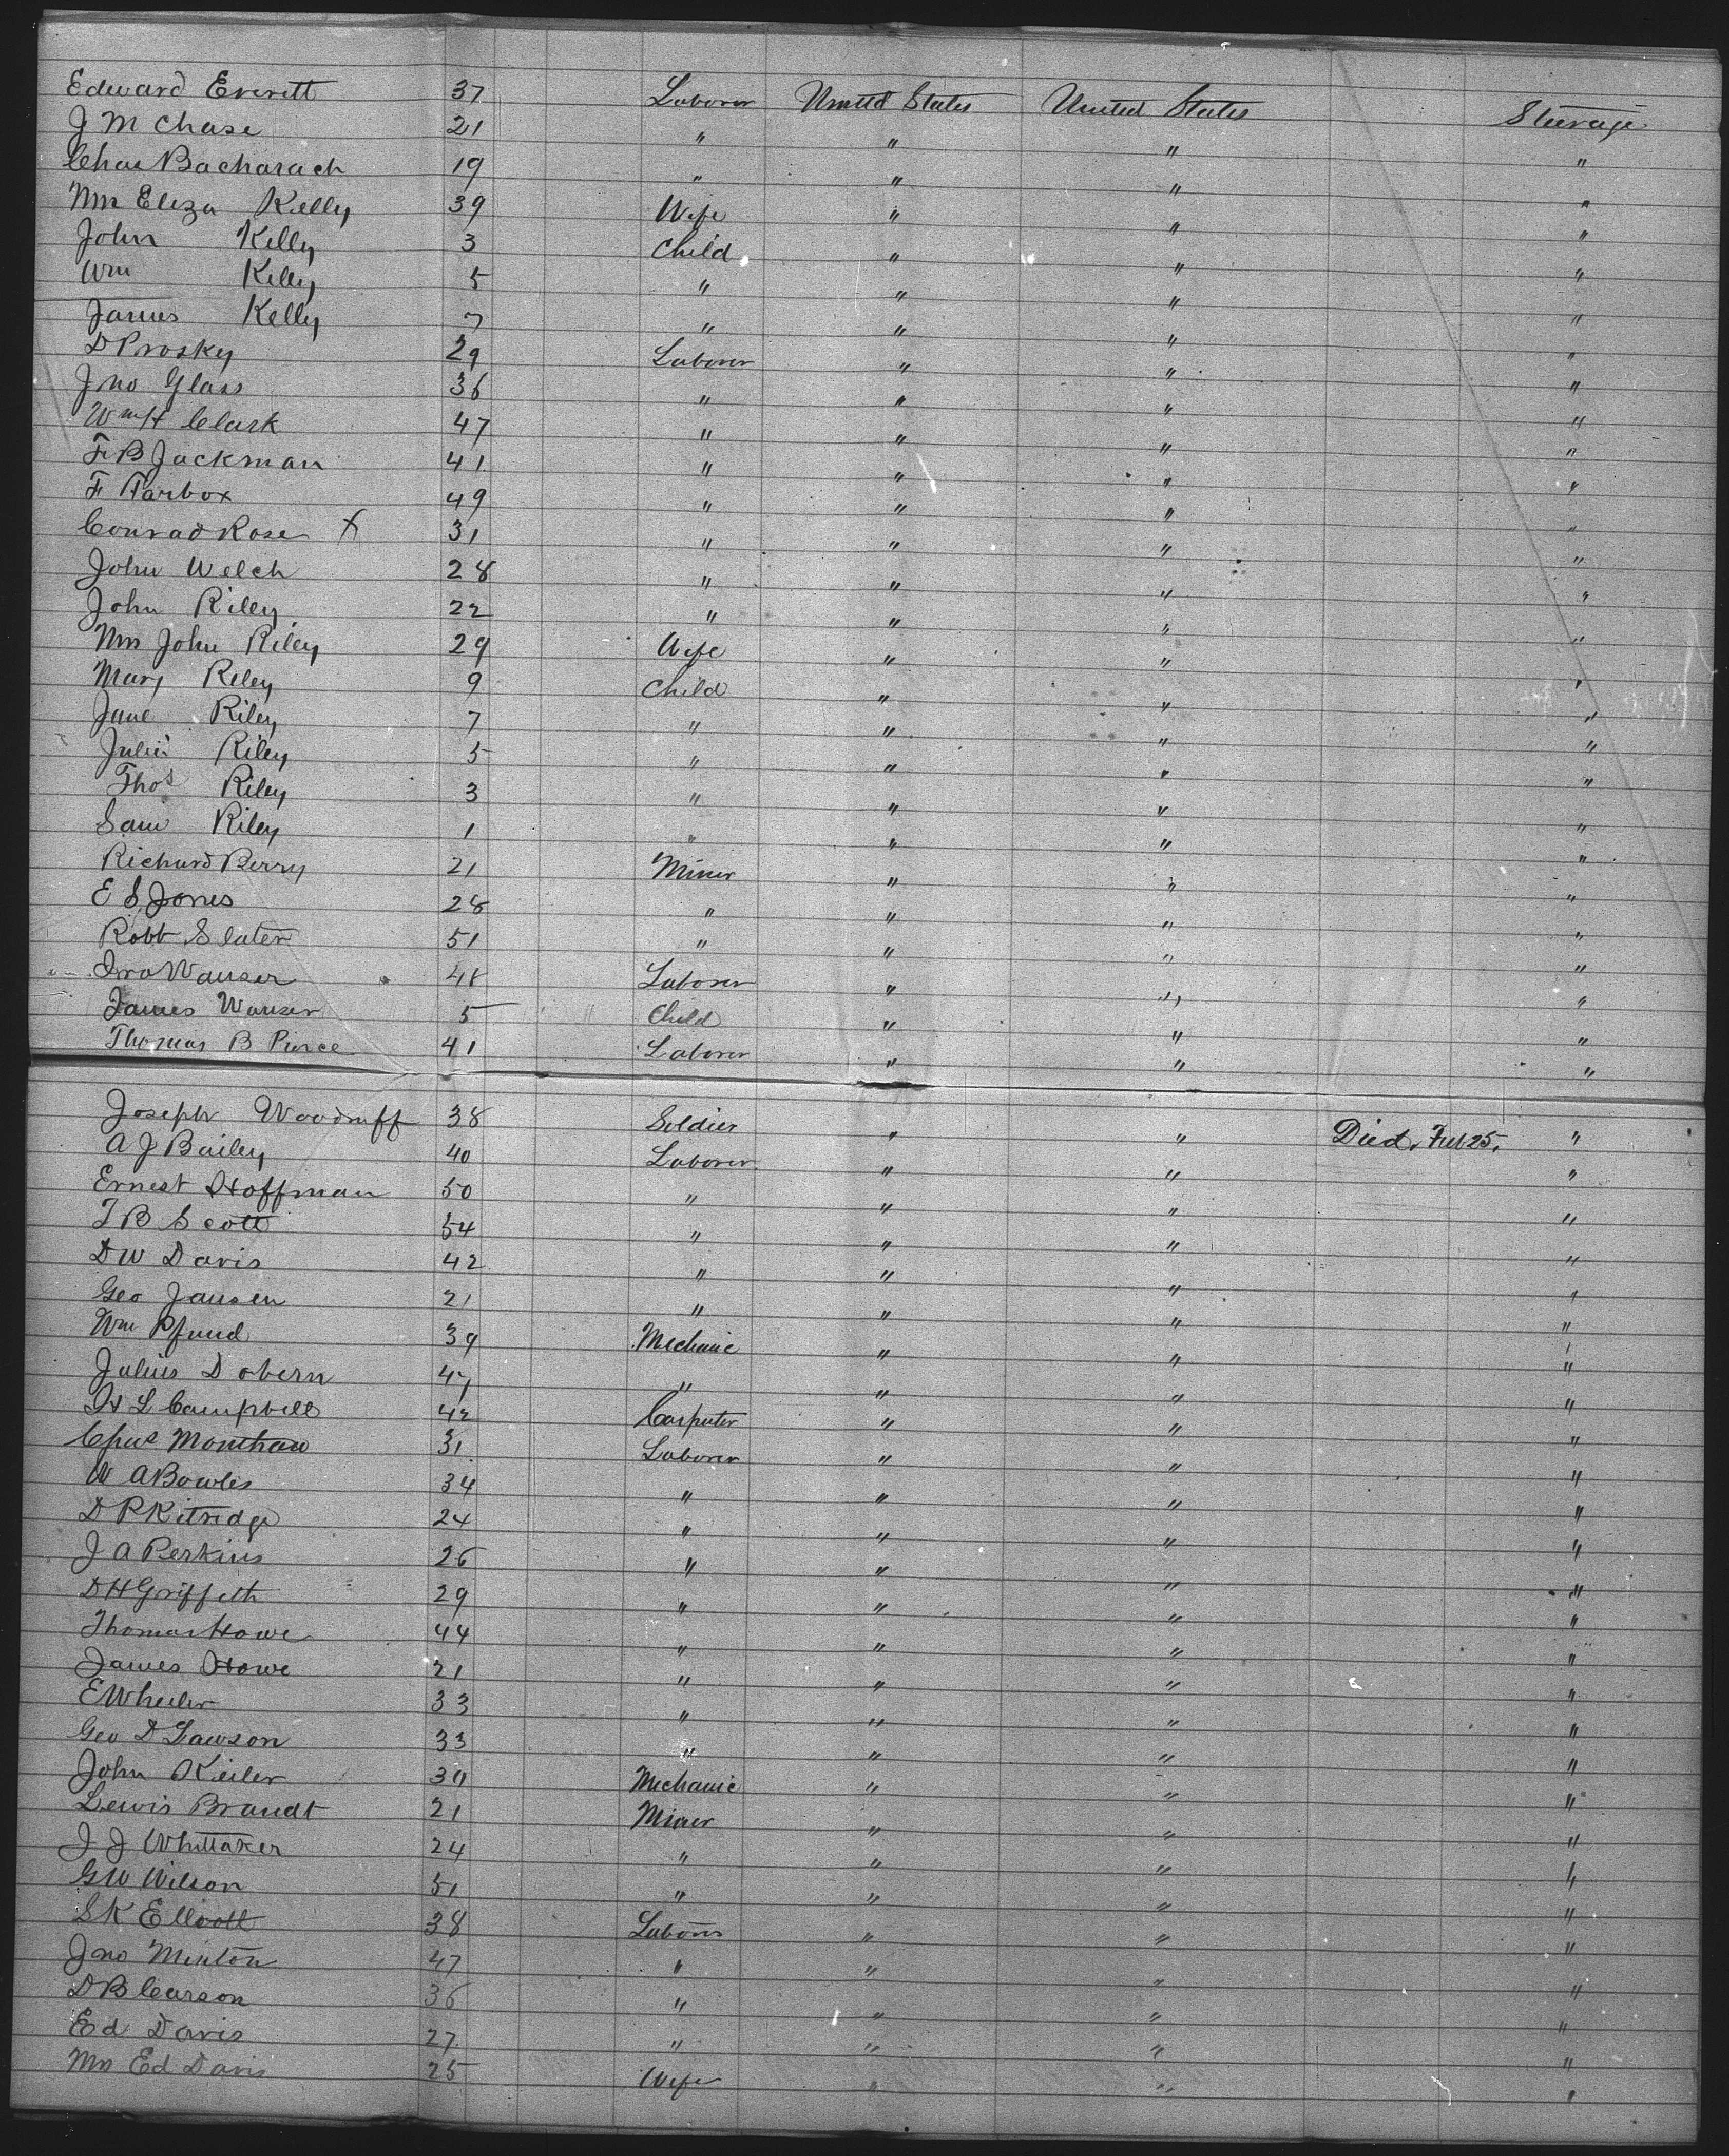 Edward Everett 37 Laborer United States United States Steerage
J M Chase 21 " " " "
Chas Bacharach 19 " " " "
Mrs Eliza Kelly 39 Wife " " "
John Kelly 3 Child " " "
Wm Kelly 5 " " " "
James Kelly 7 " " " "
D Prosky 29 Laborer " " "
Jno Glass 36 " " " "
Wm H Clark 47 " " " "
F B Jackman 41 " " " "
F Tarbox 49 " " " "
Conrad Rose X 31 " " " "
John Welch 28 " " " "
John Riley 22 " " " "
Mrs John Riley 29 Wife " " "
Mary Riley 9 Child " " "
Jane Riley 7 " " " "
Julia Riley 5 " " " "
Thos Riley 3 " " " "
Sam Riley 1 " " " "
Richard Berry 21 Miner " " "
E S Jones 28 " " " "
Robt Slater 51 " " " "
Wanser Laborer " " "
James Wanser 5 Child " " "
Thomas B Pierce 41 Laborer " " "
Joseph Woodruff 38 Soldier " " Died, Feb 25, "
A J Bailey 40 Laborer " " "
Ernest Hoffman 50 " " " "
T B Scott 54 " " " "
D W Davis 42 " " " "
Geo Jansen 21 " " " "
Wm Pfund 39 Mechanic " " "
Julius Dobern 47 " " " "
H L Campbell 42 Carpenter " " "
Chas 31 Laborer " " "
W A Bowles 34 " " " "
D P Kitredge 24 " " " "
J A Perkins 26 " " " "
D H Griffeth 29 " " " "
Thomas Howe 44 " " " "
James Howe 21 " " " "
E Wheeler 33 " " " "
Geo D Lawson 33 " " " "
John Keiler Mechanic " " "
Lewis Brandt 21 Miner " " "
J J Whittaker 24 " " " "
G W Wilson 51 " " " "
S K Ellcott 38 Laborer " " "
Jno Minton 47 " " " "
D B Carson 36 " " " "
Ed Davis 27 " " " "
Mrs Ed Davis 25 Wife " " "